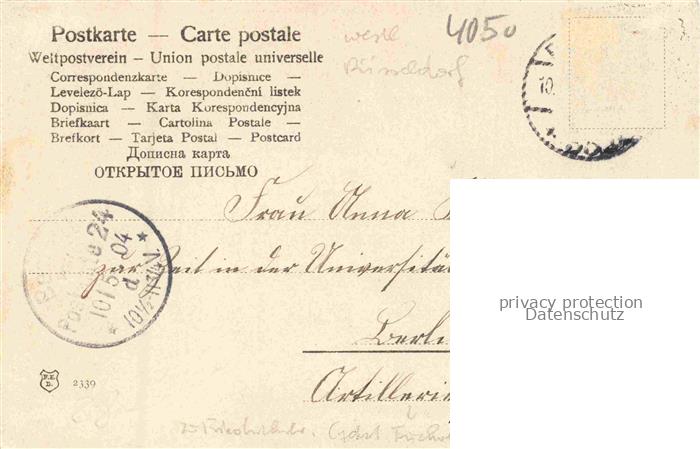 Postkarte — Carte postale
Weltpostverein – Union postale universelle
Correspondenzkarte — Dopisnice —
Levelező-Lap — Korespondenční listek
Dopisnica — Karta Korespondencyjna
Briefkaart — Cartolina Postale —
Brefkort — Tarjeta Postal — Postcard
Дописна карта
ОТКРЫТОЕ ПИСЬМО
4050
Düsseldorf
10.
Frau Anna
zur Zeit in der Universitä
Berli
Artillerie
24
10/5 04
d
10½-11¾N
2339
privacy protection
Datenschutz